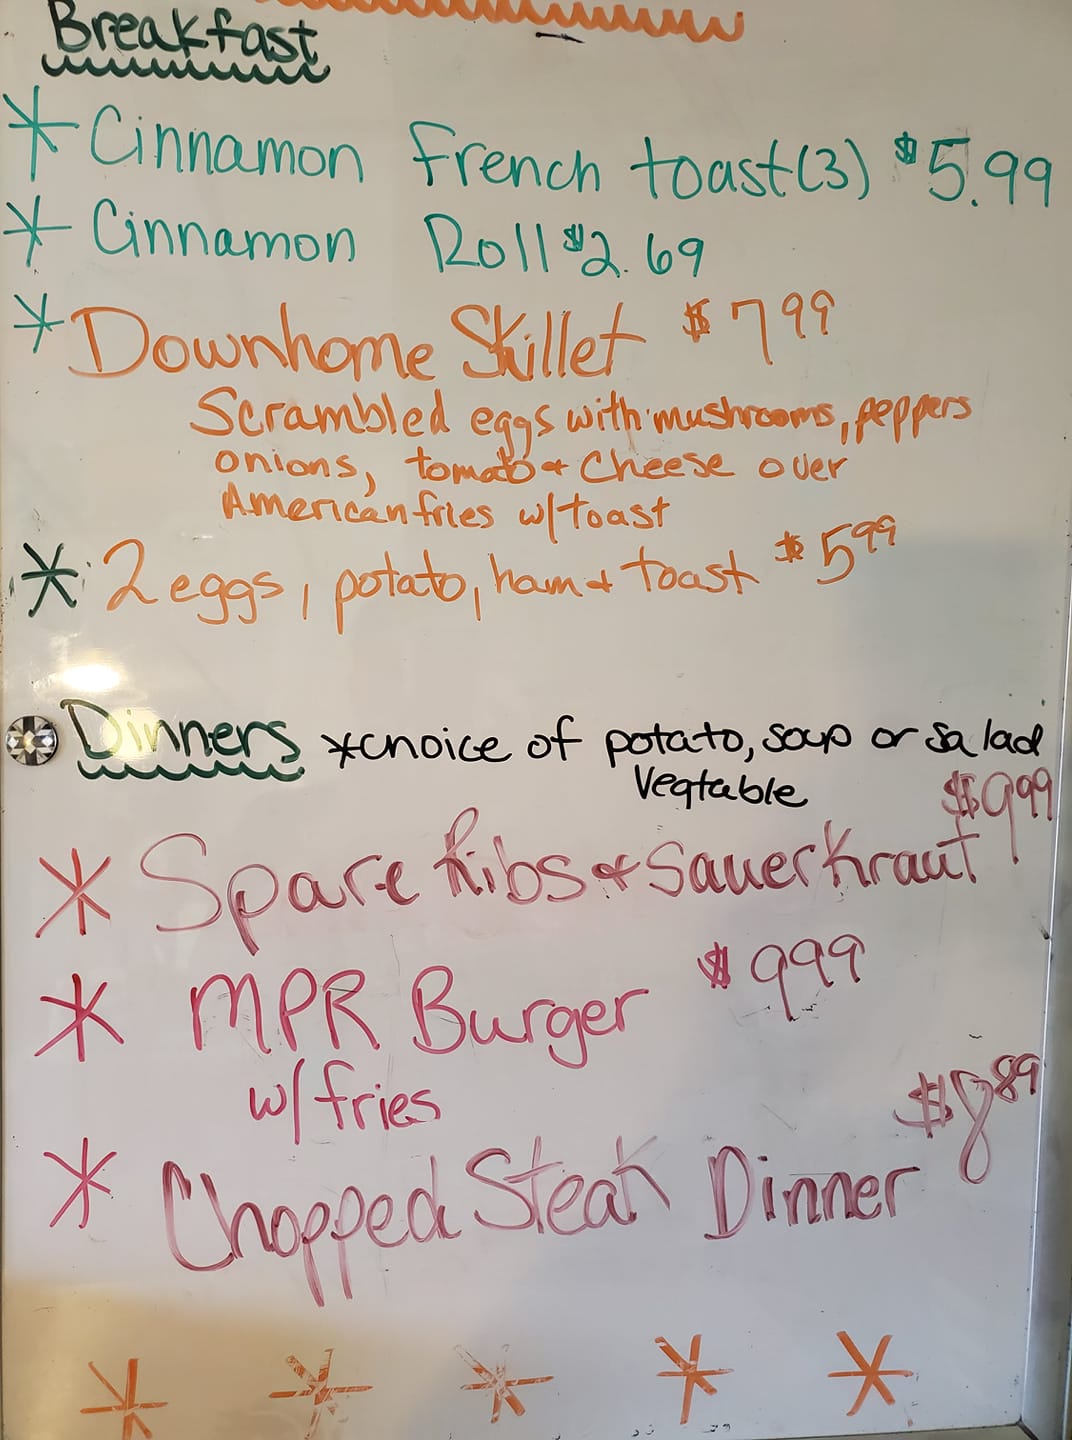 Breakfast
* Cinnamon French toast(3) $5.99
* Cinnamon Roll $2.69
* Downhome Skillet $7.99
Scrambled eggs with mushrooms, peppers
onions, tomato & cheese over
American fries w/toast
* 2 eggs, potato, ham & toast $5.99
Dinners *choice of potato, soup or salad
Vegtable
* Spare Ribs & Sauerkraut $9.99
* MPR Burger $9.99
w/fries
* Chopped Steak Dinner $8.89
* * * * *